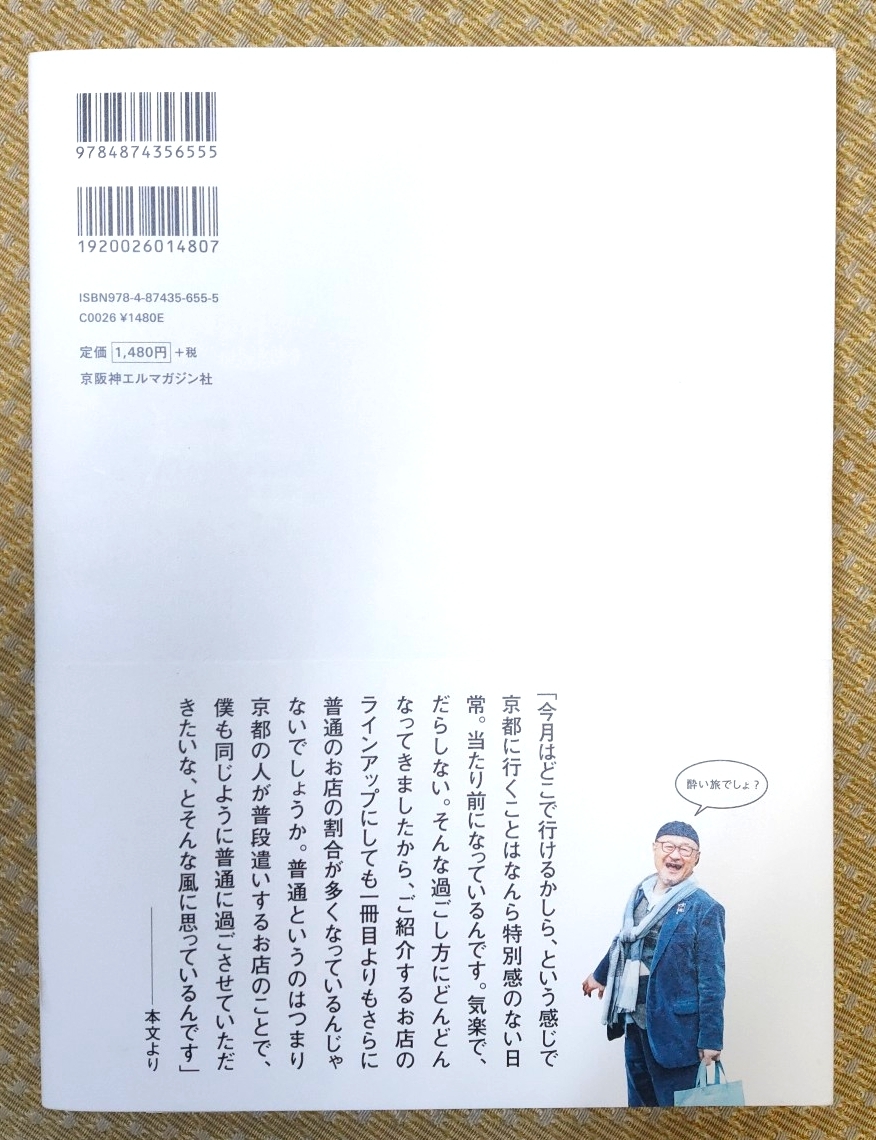 9784874356555
1920026014807
ISBN978-4-87435-655-5
C0026 ¥1480E
定価 1,480円 +税
京阪神エルマガジン社
「今月はどこで行けるかしら、という感じで
京都に行くことはなんら特別感のない日
常。当たり前になっているんです。気楽で、
だらしない。そんな過ごし方にどんどん
なってきましたから、ご紹介するお店の
ラインアップにしても一冊目よりもさらに
普通のお店の割合が多くなっているんじゃ
ないでしょうか。普通というのはつまり
京都の人が普段遣いするお店のことで、
僕も同じように普通に過ごさせていただ
きたいな、とそんな風に思っているんです」
――本文より
酔い旅でしょ？